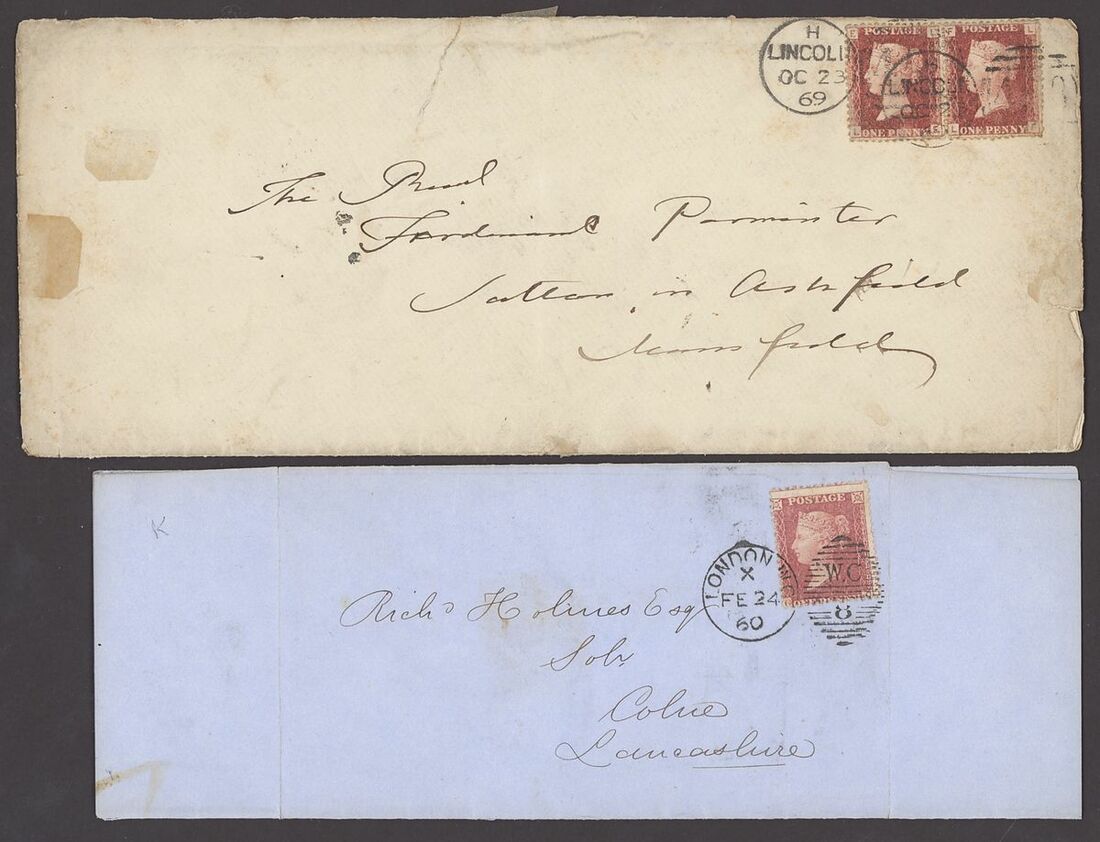 H
LINCOLN
OC 23
69
POSTAGE
POSTAGE
ONE PENNY
ONE PENNY
L E
L
LINCOLN
OC 2
The Revd
Ferdinand Parminter
Sutton in Ashfield
Mansfield
K
POSTAGE
LONDON W.C
X
FE 24
60
W.C
8
Richd Holmes Esq
Solr
Colne
Lancashire